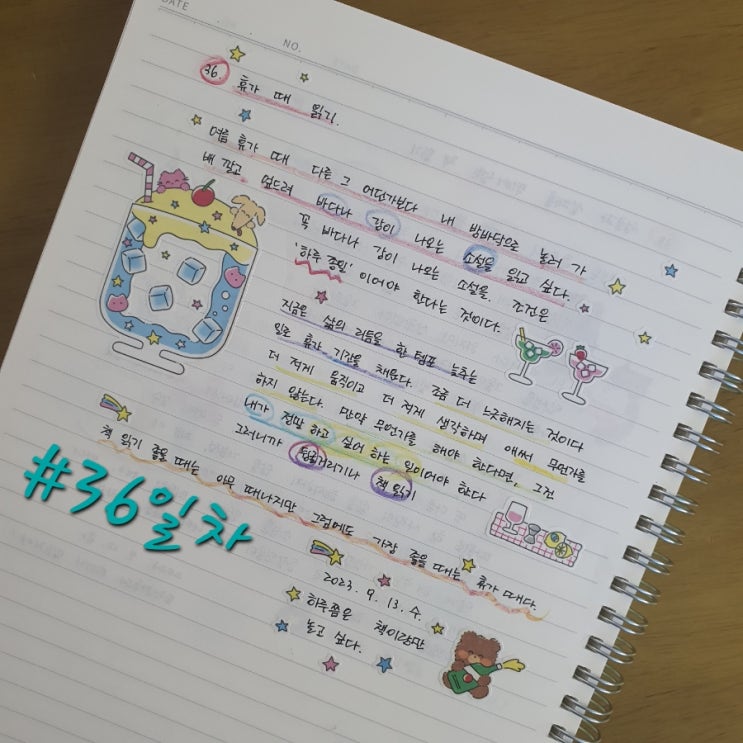 DATE . .
NO.
36. 휴가 때 읽기.
여름 휴가 때 다른 그 어떤가보다 내 방바닥으로 놀러 가
배 깔고 엎드려 바다나 강이 나오는 소설을 읽고 싶다.
꼭 바다나 강이 나오는 소설을. 조건은
'하루 종일' 이어야 한다는 것이다.
지금은 삶의 리듬을 한 템포 늦추는
일로 휴가 기간을 채운다. 조금 더 느긋해지는 것이다
더 적게 움직이고 더 적게 생각하며 애써 무언가를
하지 않는다. 만약 무언가를 해야 한다면, 그건
내가 정말 하고 싶어 하는 일이어야 한다
그러니까 뒹굴거리기나 책 읽기
책 읽기 좋을 때는 아무 때나지만 그럼에도 가장 좋을 때는 휴가 때다.
#36일차
2023. 9. 13. 수.
하루쯤은 책이랑만
놀고 싶다.